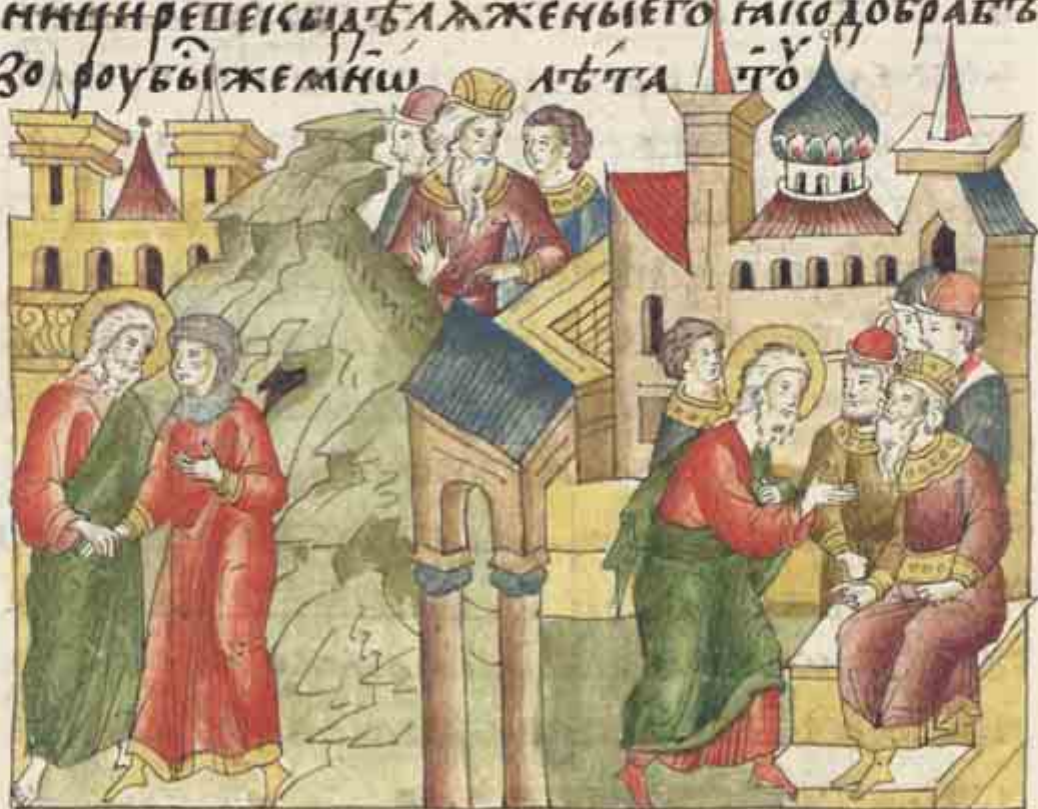 ници ревекы дѣлѧ жены его ꙗко добра бѣ
зороу бы̑ же мнѡ́ лѣ́та тоу